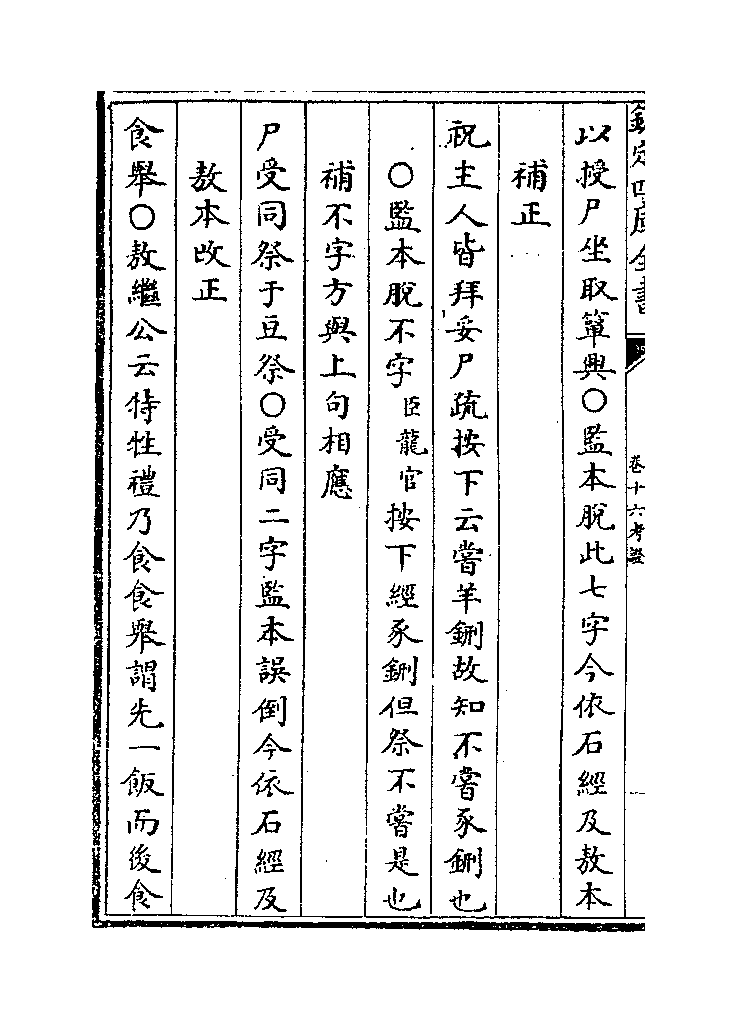 欽定四庫全書
卷十六考證
以授尸坐取簞興○監本脫此七字今依石經及敖本
補正
祝主人皆拜妥尸疏按下云嘗羊鉶故知不嘗豕鉶也
○監本脫不字臣龍官按下經豕鉶但祭不嘗是也
補不字方與上句相應
尸受同祭于豆祭○受同二字監本誤倒今依石經及
敖本改正
食舉○敖繼公云特牲禮乃食食舉謂先一飯而後食